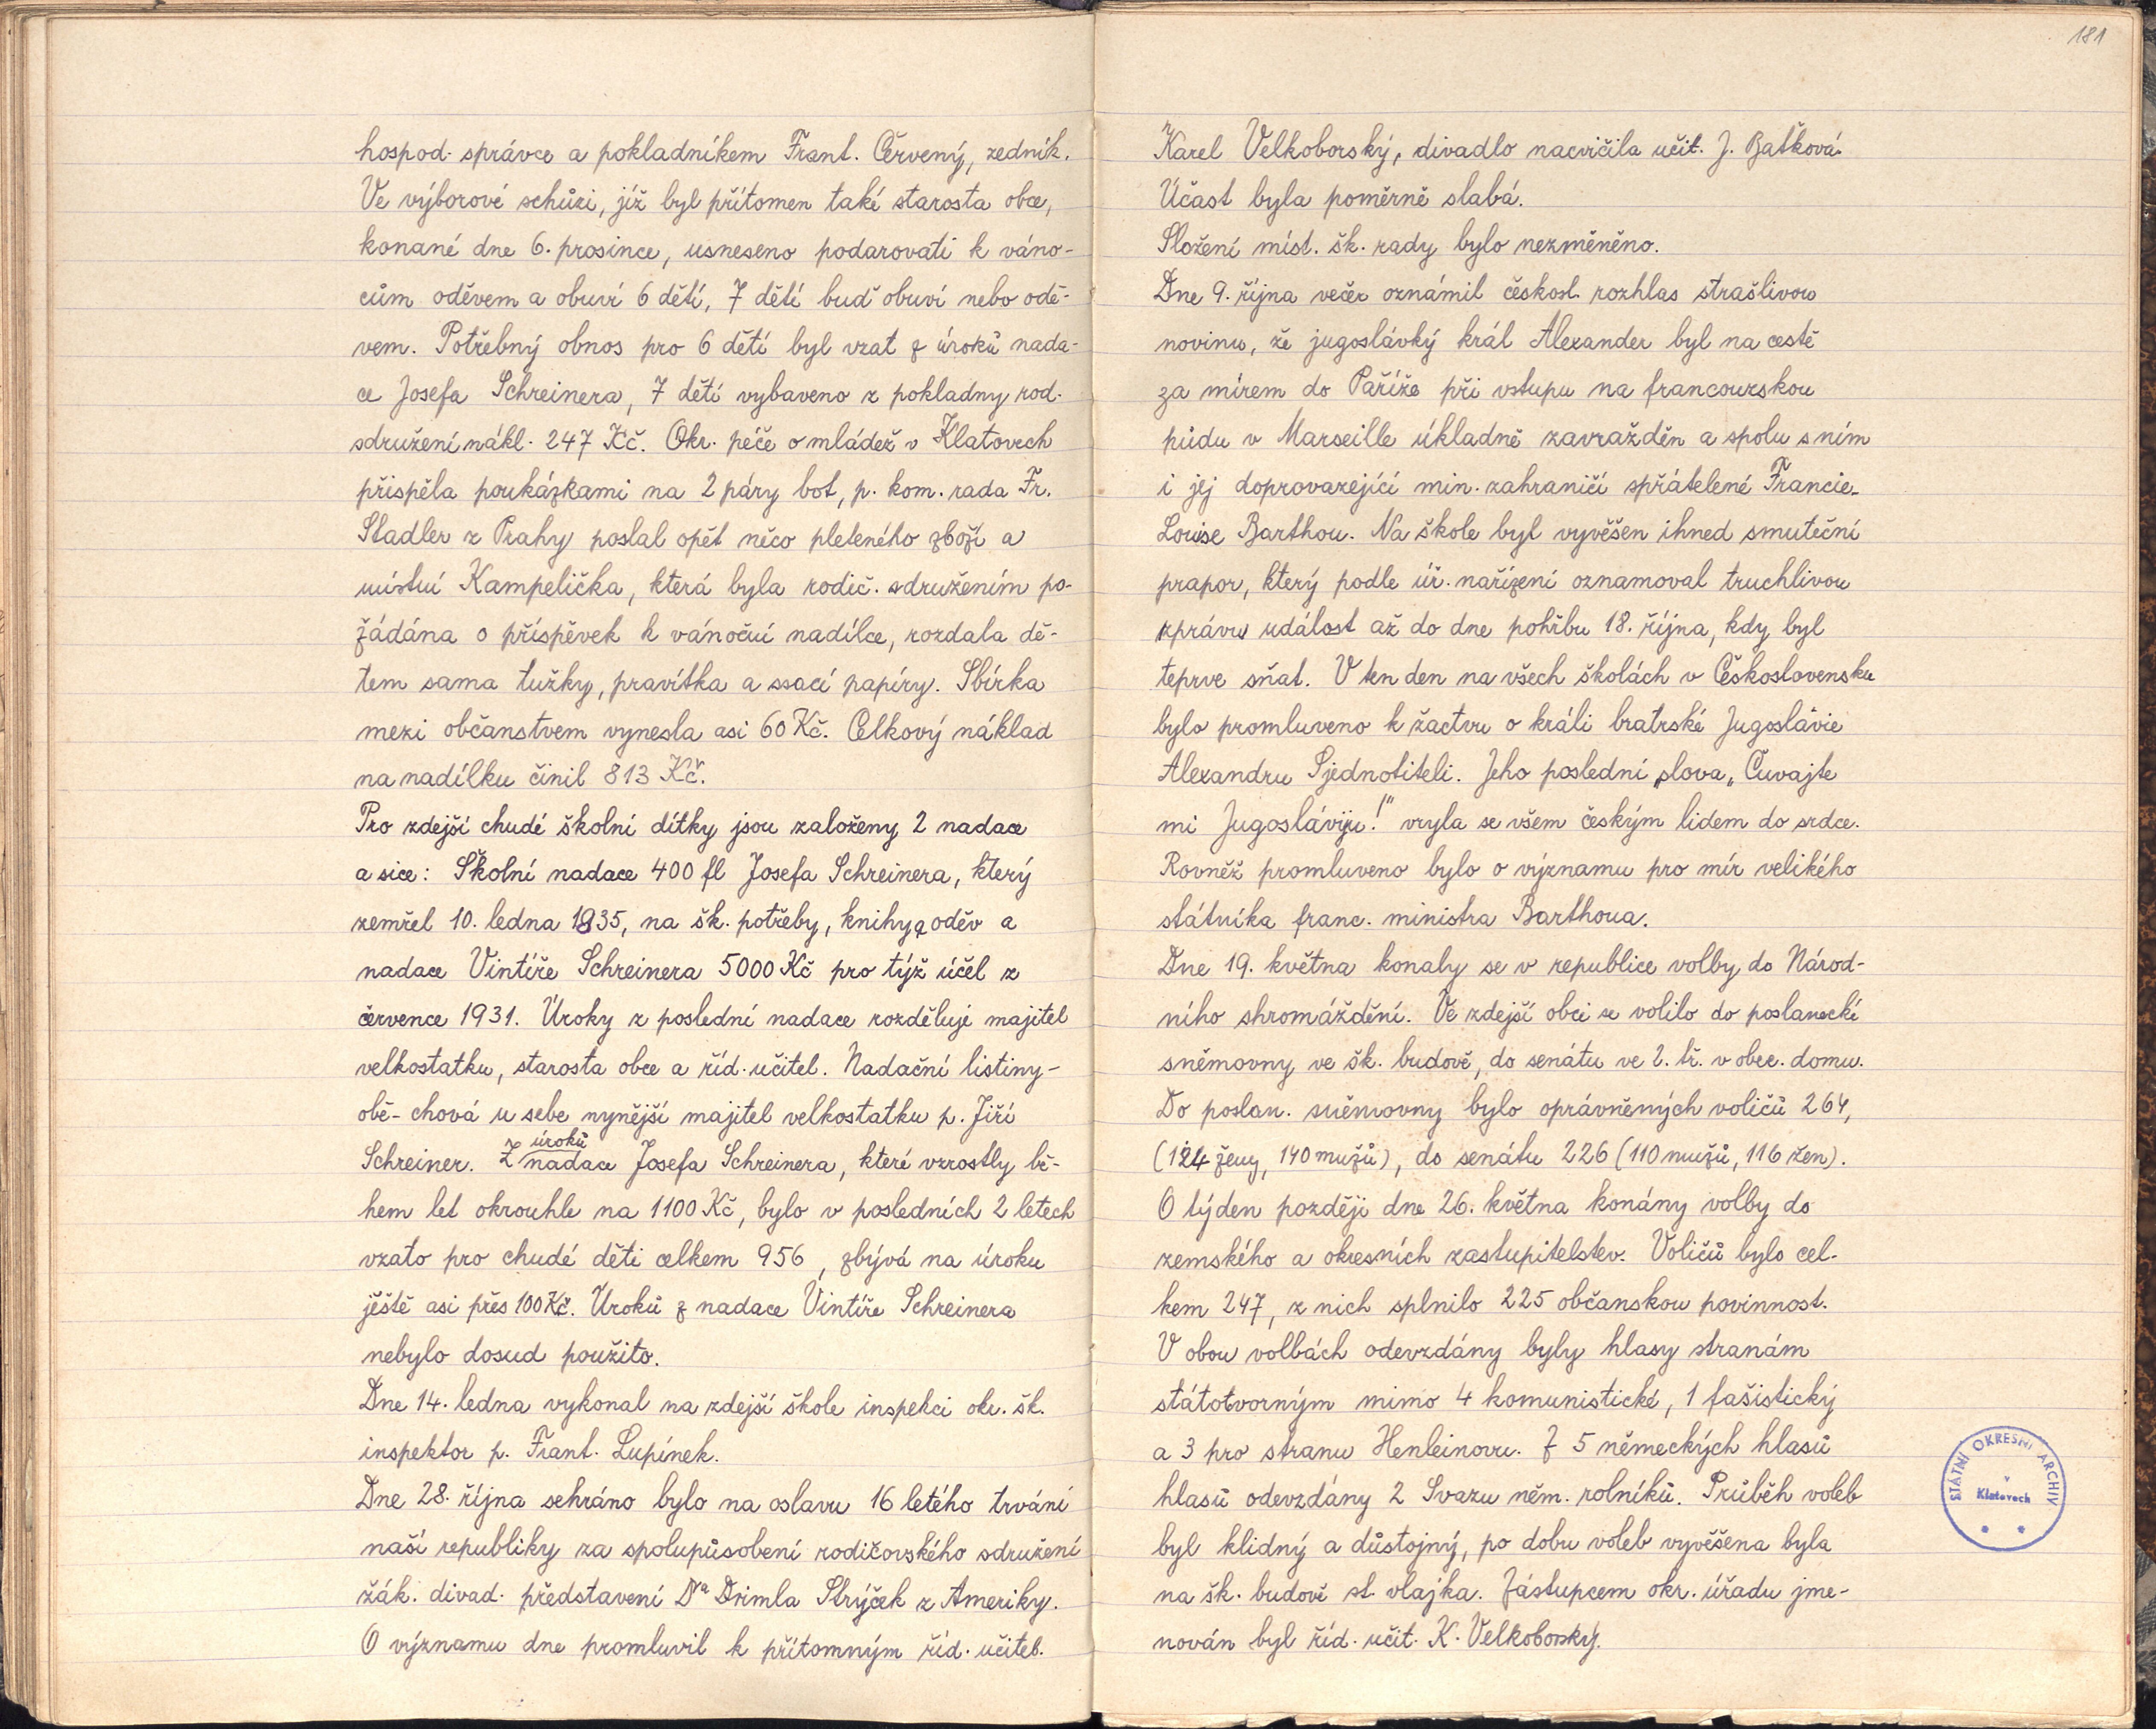 hospod. správce a pokladníkem Frant. Červený, zedník.
Ve výborové schůzi, jíž byl přítomen také starosta obce,
konané dne 6. prosince, usneseno podarovati k váno-
cům oděvem a obuví 6 dětí, 7 dětí buď obuví nebo odě-
vem. Potřebný obnos pro 6 dětí byl vzat z úroků nada-
ce Josefa Schreinera, 7 dětí vybaveno z pokladny rod.
sdružení nákl. 247 Kč. Okr. péče o mládež v Klatovech
přispěla poukázkami na 2 páry bot, p. kom. rada Fr.
Stadler z Prahy poslal opět něco pleteného zboží a
místní Kampelička, která byla rodič. sdružením po-
žádána o příspěvek k vánoční nadílce, rozdala dě-
tem sama tužky, pravítka a ssací papíry. Sbírka
mezi občanstvem vynesla asi 60 Kč. Celkový náklad
na nadílku činil 813 Kč.
Pro zdejší chudé školní dítky jsou založeny 2 nadace
a sice: Školní nadace 400 fl Josefa Schreinera, který
zemřel 10. ledna 1835, na šk. potřeby, knihy a oděv a
nadace Vintíře Schreinera 5000 Kč pro týž účel z
července 1931. Úroky z poslední nadace rozděluje majitel
velkostatku, starosta obce a říd. učitel. Nadační listiny-
obě- chová u sebe nynější majitel velkostatku p. Jiří
Schreiner. Z úroků nadace Josefa Schreinera, které vzrostly bě-
hem let okrouhle na 1100 Kč, bylo v posledních 2 letech
vzato pro chudé děti celkem 956, zbývá na úroku
ještě asi přes 100 Kč. Úroků z nadace Vintíře Schreinera
nebylo dosud použito.
Dne 14. ledna vykonal na zdejší škole inspekci okr. šk.
inspektor p. Frant. Lupínek.
Dne 28. října sehráno bylo na oslavu 16 letého trvání
naší republiky za spolupůsobení rodičovského sdružení
žák. divad. představení Dra Drimla Strýček z Ameriky.
O významu dne promluvil k přítomným říd. učitel.
181
Karel Velkoborský, divadlo nacvičila učit. J. Baťková.
Účast byla poměrně slabá.
Složení míst. šk. rady bylo nezměněno.
Dne 9. října večer oznámil českosl. rozhlas strašlivou
novinu, že jugoslávký král Alexander byl na cestě
za mírem do Paříže při vstupu na francouzskou
půdu v Marseille úkladně zavražděn a spolu s ním
i jej doprovazející min. zahraničí spřátelené Francie
Louise Barthou. Na škole byl vyvěšen ihned smuteční
prapor, který podle úř. nařízení oznamoval truchlivou
zprávu událost až do dne pohřbu 18. října, kdy byl
teprve sňat. V ten den na všech školách v Československu
bylo promluveno k žactvu o králi bratrské Jugoslávie
Alexandru Sjednotiteli. Jeho poslední slova „Čuvajte
mi Jugosláviju!" vryla se všem českým lidem do srdce.
Rovněž promluveno bylo o významu pro mír velikého
státníka franc. ministra Barthoua.
Dne 19. května konaly se v republice volby do Národ-
ního shromáždění. Ve zdejší obci se volilo do poslanecké
sněmovny ve šk. budově, do senátu ve 2. tř. v obec. domu.
Do poslan. sněmovny bylo oprávněných voličů 264,
(124 ženy, 140 mužů), do senátu 226 (110 mužů, 116 žen).
O týden později dne 26. května konány volby do
zemského a okresních zastupitelstev. Voličů bylo cel-
kem 247, z nich splnilo 225 občanskou povinnost.
V obou volbách odevzdány byly hlasy stranám
státotvorným mimo 4 komunistické, 1 fašistický
a 3 pro stranu Henleinovu. Z 5 německých hlasů
hlasů odevzdány 2 Svazu něm. rolníků. Průběh voleb
byl klidný a důstojný, po dobu voleb vyvěšena byla
na šk. budově st. vlajka. Zástupcem okr. úřadu jme-
nován byl říd. učit. K. Velkoborský.
STÁTNÍ OKRESNÍ ARCHIV
v
Klatovech